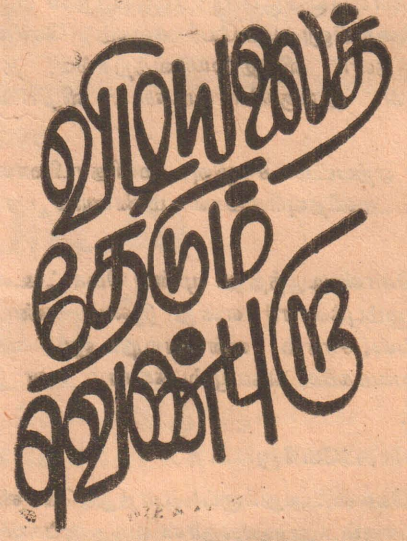 விடியலைத்
தேடும்
வெண்புறா